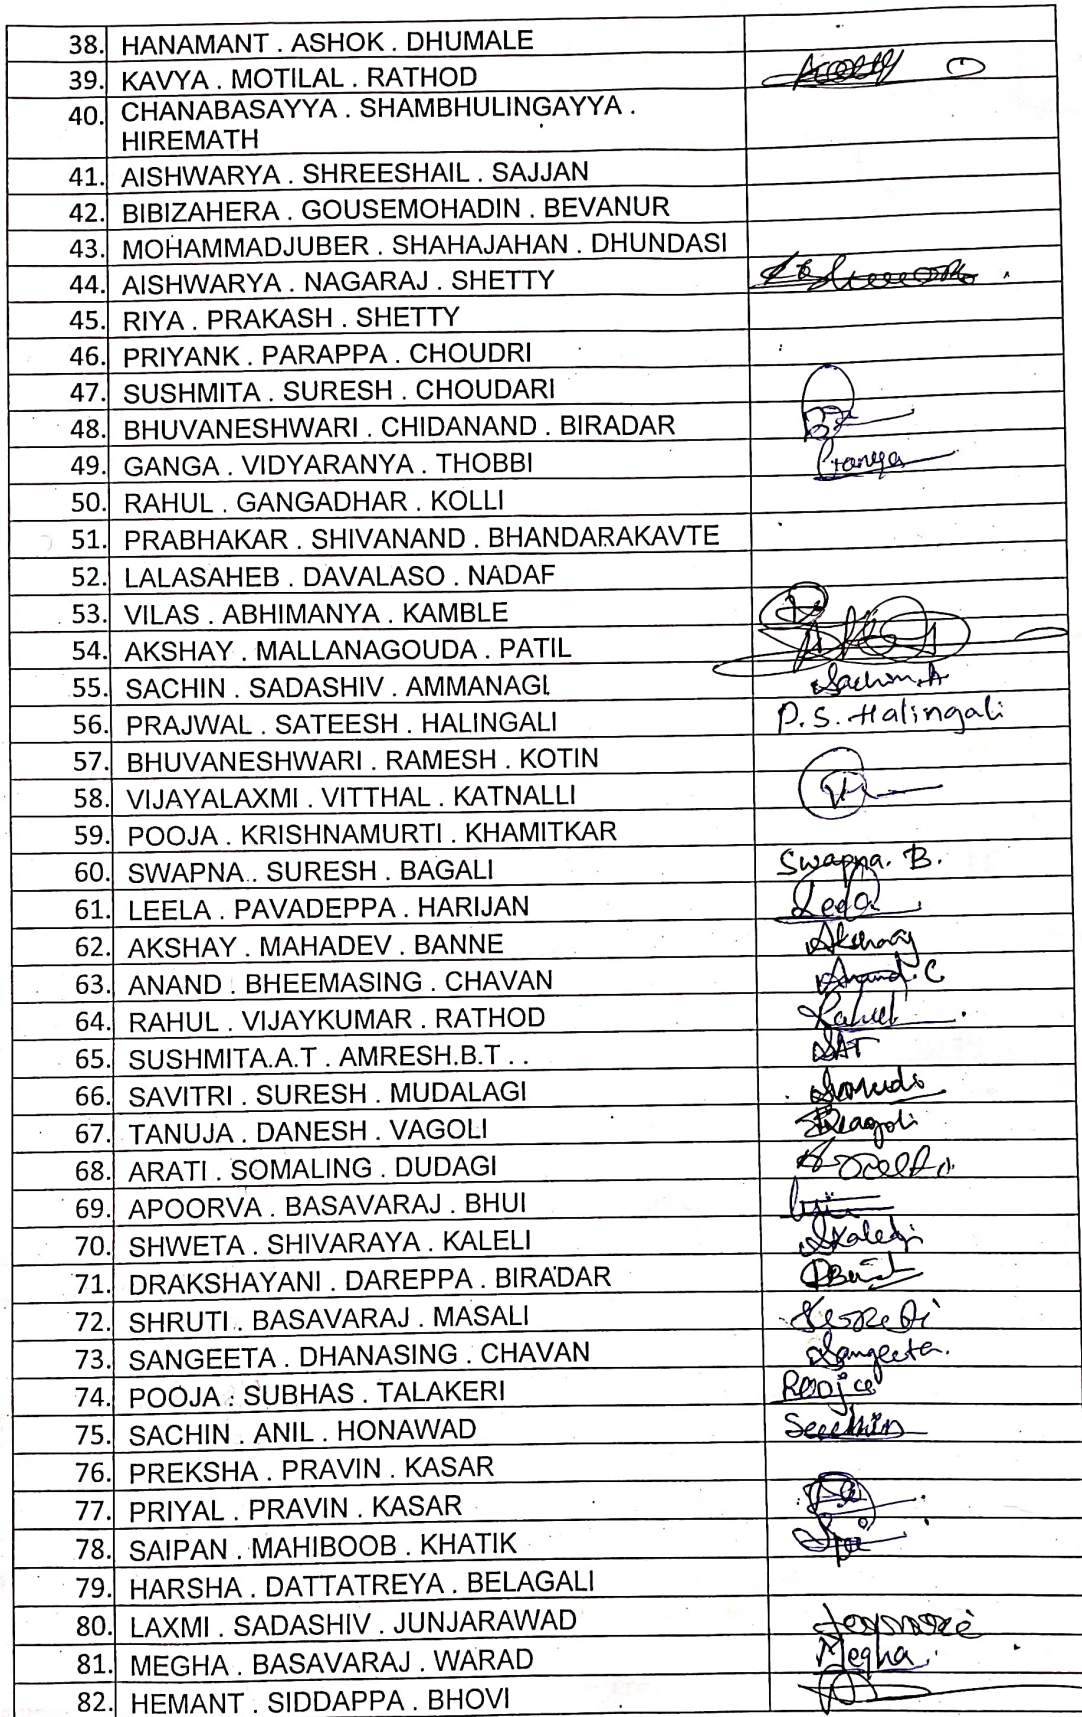 38. HANAMANT . ASHOK . DHUMALE
39. KAVYA . MOTILAL . RATHOD
40. CHANABASAYYA . SHAMBHULINGAYYA .
HIREMATH
41. AISHWARYA . SHREESHAIL . SAJJAN
42. BIBIZAHERA . GOUSEMOHADIN . BEVANUR
43. MOHAMMADJUBER . SHAHAJAHAN . DHUNDASI
44. AISHWARYA . NAGARAJ . SHETTY
45. RIYA . PRAKASH . SHETTY
46. PRIYANK . PARAPPA . CHOUDRI
47. SUSHMITA . SURESH . CHOUDARI
48. BHUVANESHWARI . CHIDANAND . BIRADAR
49. GANGA . VIDYARANYA . THOBBI Ganga
50. RAHUL . GANGADHAR . KOLLI
51. PRABHAKAR . SHIVANAND . BHANDARAKAVTE
52. LALASAHEB . DAVALASO . NADAF
53. VILAS . ABHIMANYA . KAMBLE
54. AKSHAY . MALLANAGOUDA . PATIL
55. SACHIN . SADASHIV . AMMANAGI Sachin.A
56. PRAJWAL . SATEESH . HALINGALI P. S. Halingali
57. BHUVANESHWARI . RAMESH . KOTIN
58. VIJAYALAXMI . VITTHAL . KATNALLI
59. POOJA . KRISHNAMURTI . KHAMITKAR
60. SWAPNA . SURESH . BAGALI Swapna. B.
61. LEELA . PAVADEPPA . HARIJAN Leela
62. AKSHAY . MAHADEV . BANNE Akshay
63. ANAND . BHEEMASING . CHAVAN Anand.C
64. RAHUL . VIJAYKUMAR . RATHOD Rahul
65. SUSHMITA.A.T . AMRESH.B.T . . SAT
66. SAVITRI . SURESH . MUDALAGI
67. TANUJA . DANESH . VAGOLI
68. ARATI . SOMALING . DUDAGI
69. APOORVA . BASAVARAJ . BHUI
70. SHWETA . SHIVARAYA . KALELI
71. DRAKSHAYANI . DAREPPA . BIRADAR
72. SHRUTI . BASAVARAJ . MASALI
73. SANGEETA . DHANASING . CHAVAN Sangeeta.
74. POOJA . SUBHAS . TALAKERI
75. SACHIN . ANIL . HONAWAD
76. PREKSHA . PRAVIN . KASAR
77. PRIYAL . PRAVIN . KASAR
78. SAIPAN . MAHIBOOB . KHATIK
79. HARSHA . DATTATREYA . BELAGALI
80. LAXMI . SADASHIV . JUNJARAWAD
81. MEGHA . BASAVARAJ . WARAD Megha
82. HEMANT . SIDDAPPA . BHOVI